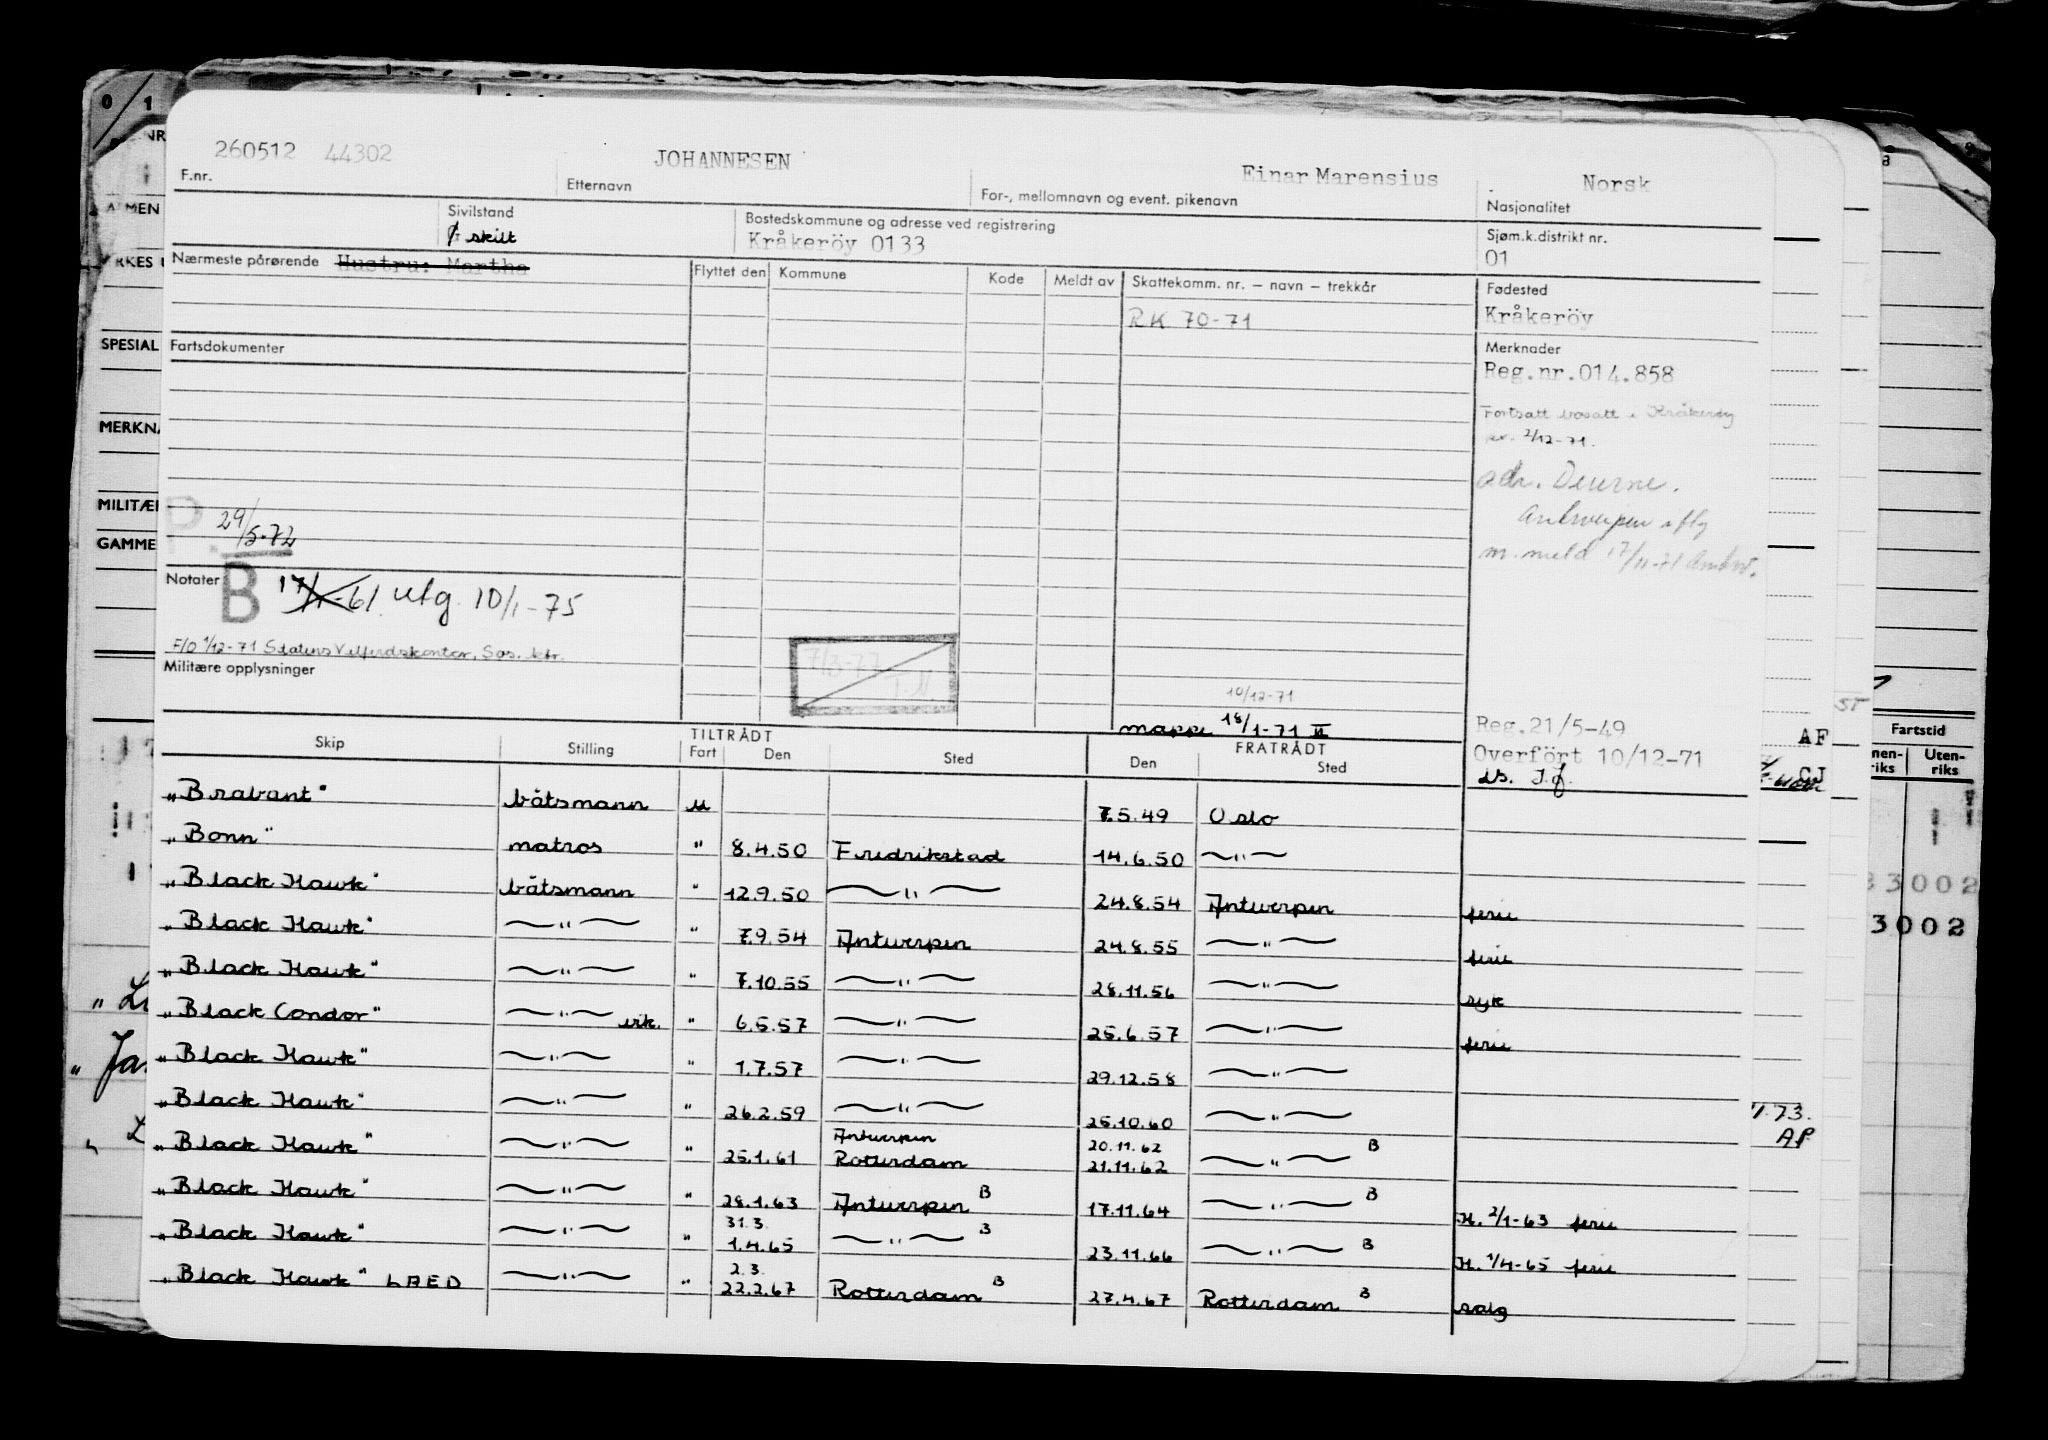 260512 44302 JOHANNESEN Einar Marensius Norsk
F.nr. Etternavn For-, mellomnavn og event. pikenavn Nasjonalitet
Sivilstand Bostedskommune og adresse ved registrering Sjøm.k.distrikt nr.
skilt Kråkeröy 0133 01
Nærmeste pårørende Hustru: Martha Flyttet den Kommune Kode Meldt av Skattekomm. nr. – navn – trekkår Fødested
RK 70-71 Kråkeröy
Fartsdokumenter Merknader
Reg.nr.014.858
Fortsatt bosatt i Kråkeröy
2/12-71.
adr. Deurne.
Antwerpen iflg
m. meld 17/11-71
29/5-72
Notater B 17/1-61 utg. 10/1-75
F/O 1/12-71 Statens Velferdskontor, Sos. ktr.
Militære opplysninger
7/3-77
T.N.
10/12-71
mappe 18/1-71 II
Reg.21/5-49
Overfört 10/12-71
ds. I.f.
TILTRÅDT FRATRÅDT
Skip Stilling Fart Den Sted Den Sted
"Brabant" båtsmann u 7.5.49 Oslo
"Bonn" matros " 8.4.50 Fredrikstad 14.6.50 —"—
"Black Hawk" båtsmann " 12.9.50 —"— 24.8.54 Antwerpen ferie
"Black Hawk" —"— " 7.9.54 Antwerpen 24.8.55 —"— ferie
"Black Hawk" —"— " 7.10.55 —"— 28.11.56 —"— syk
"Black Condor" —"— vik. " 6.5.57 —"— 25.6.57 —"— ferie
"Black Hawk" —"— " 1.7.57 —"— 29.12.58 —"—
"Black Hawk" —"— " 26.2.59 —"— 25.10.60 —"—
Antwerpen 20.11.62
"Black Hawk" —"— " 25.1.61 Rotterdam 21.11.62 —"— B
"Black Hawk" —"— " 28.1.63 Antwerpen B 17.11.64 —"— B H. 2/1-63 ferie
31.3.
"Black Hawk" —"— " 1.4.65 —"— B 23.11.66 —"— B H. 1/4-65 ferie
2.3.
"Black Hawk" LAED —"— " 22.2.67 Rotterdam B 27.4.67 Rotterdam B salg
0/1
SPESIAL
MERKNA
MILITÆR
GAMME
Fartstid
Uten-
riks
AF
CJ
33002
3002
.73.
AP